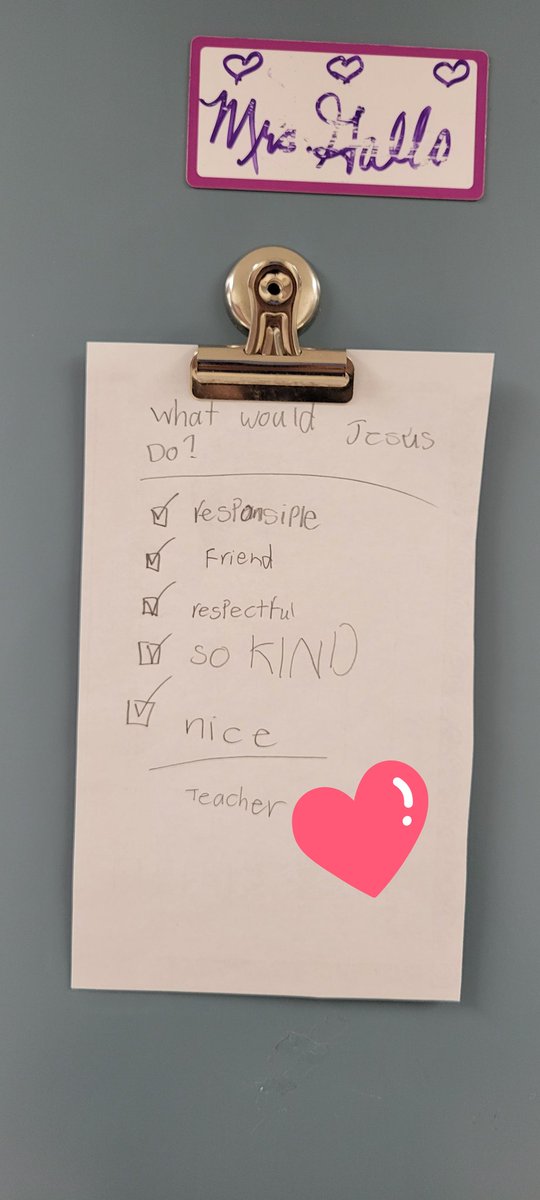 Mrs.
what would Jesus
Do?
responsiple
Friend
respectful
so KIND
nice
Teacher